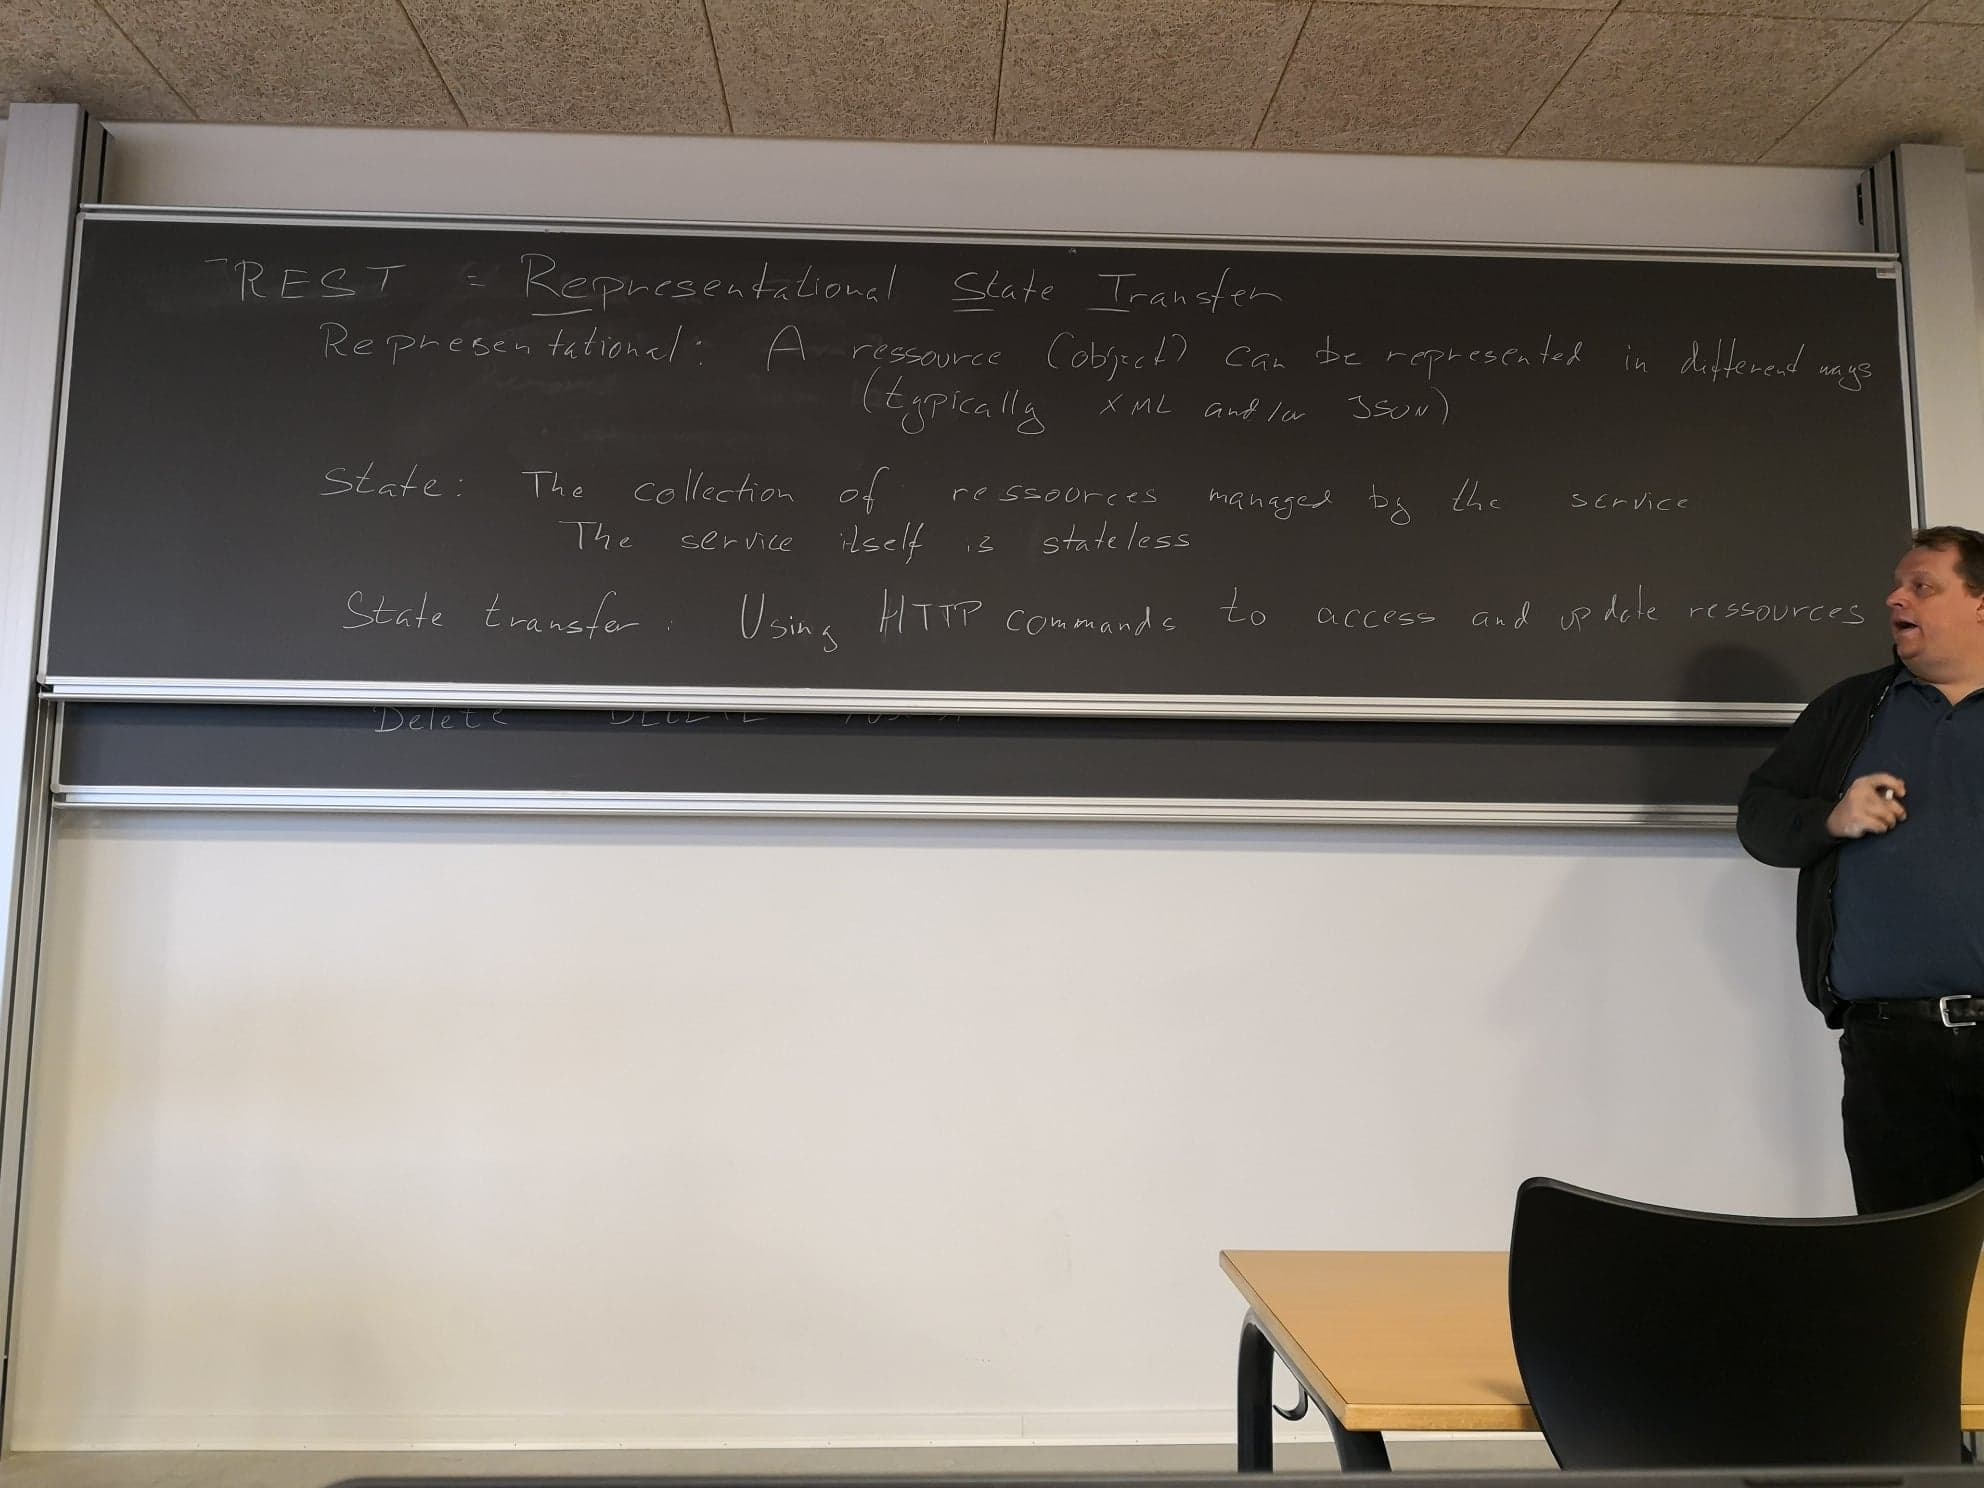 REST = Representational State Transfer
Representational: A ressource (object) can be represented in different ways
(typically XML and/or JSON)
State: The collection of ressources managed by the service
The service itself is stateless
State transfer: Using HTTP commands to access and update ressources
Delete DELETE